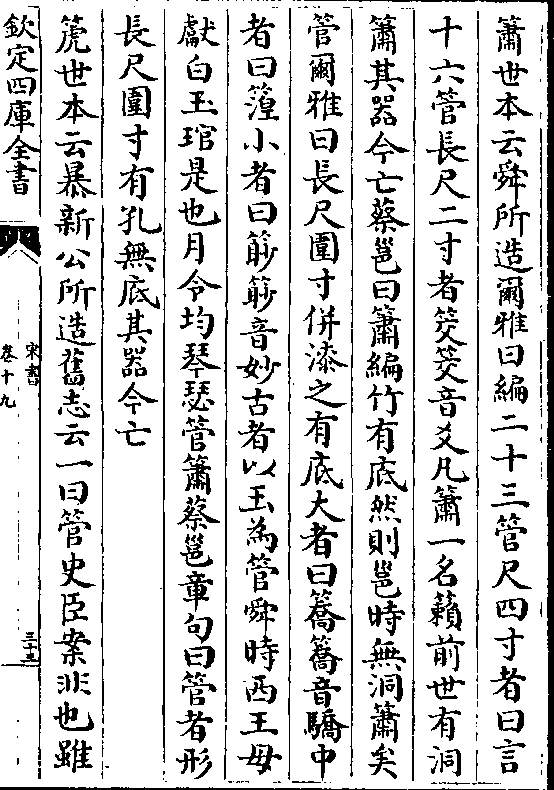 簫世本云舜所造爾雅曰編二十三管尺四寸者曰言
十六管長尺二寸者筊筊音爻凡簫一名籟前世有洞
簫其器今亡蔡邕曰簫編竹有底然則邕時無洞簫矣
管爾雅曰長尺圍寸併漆之有底大者曰簥簥音驕中
者曰篞小者曰篎篎音妙古者以玉為管舜時西王母
獻白玉琯是也月令均琴瑟管簫蔡邕章句曰管者形
長尺圍寸有孔無底其器今亡
箎世本云暴新公所造舊志云一曰管史臣案非也雖
欽定四庫全書
宋書
卷十九
三十五